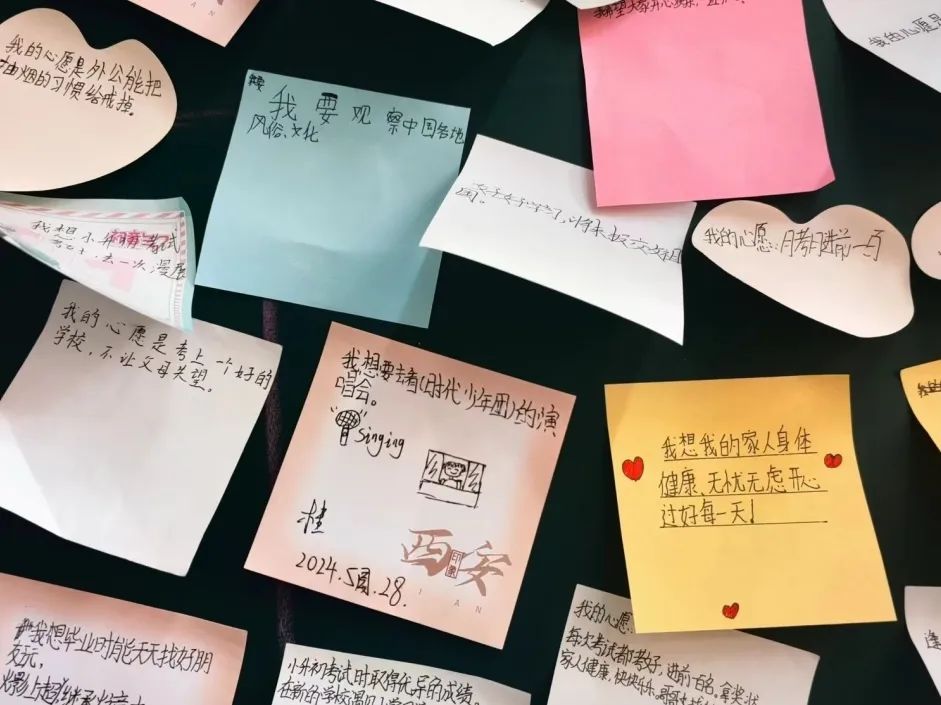 我的心愿是外公能把
抽烟的习惯给戒掉。
我要观察中国各地
风俗、文化
希望大家开心快乐,
我的心愿是
好好学习,将来报效祖国。
我的心愿:月考进前一百
我想小
去一次漫展
我的心愿是考上一个好的
学校,不让父母失望。
我想要去看(时代少年团)的演
唱会。
singing
2024.5月.28.
西安
印象
IAN
我想我的家人身体
健康、无忧无虑开心
过好每一天!
我想毕业时能天天找好朋
友玩,
小升初考试时取得优异的成绩。
在新的学校遇见
我的心愿:
每次考试都考好,进前百名。拿奖状
家人健康,快快乐乐。